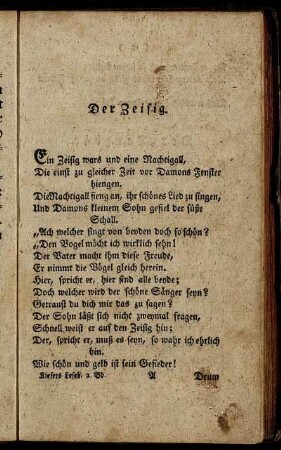 Der Zeisig.
Ein Zeisig wars und eine Nachtigall,
Die einst zu gleicher Zeit vor Damons Fenster
hiengen.
Die Nachtigall fieng an, ihr schönes Lied zu singen,
Und Damons kleinem Sohn gefiel der süße
Schall.
„Ach welcher singt von beyden doch so schön?
„Den Vogel möcht ich wirklich sehn!
Der Vater macht ihm diese Freude,
Er nimmt die Vögel gleich herein.
Hier, spricht er, hier sind alle beyde;
Doch welcher wird der schöne Sänger seyn?
Getraust du dich mir das zu sagen?
Der Sohn läßt sich nicht zweymal fragen,
Schnell weist er auf den Zeisig hin;
Der, spricht er, muß es seyn, so wahr ich ehrlich
bin.
Wie schön und gelb ist sein Gefieder!
Kiefers Leseb. 2. Bd. A Drum